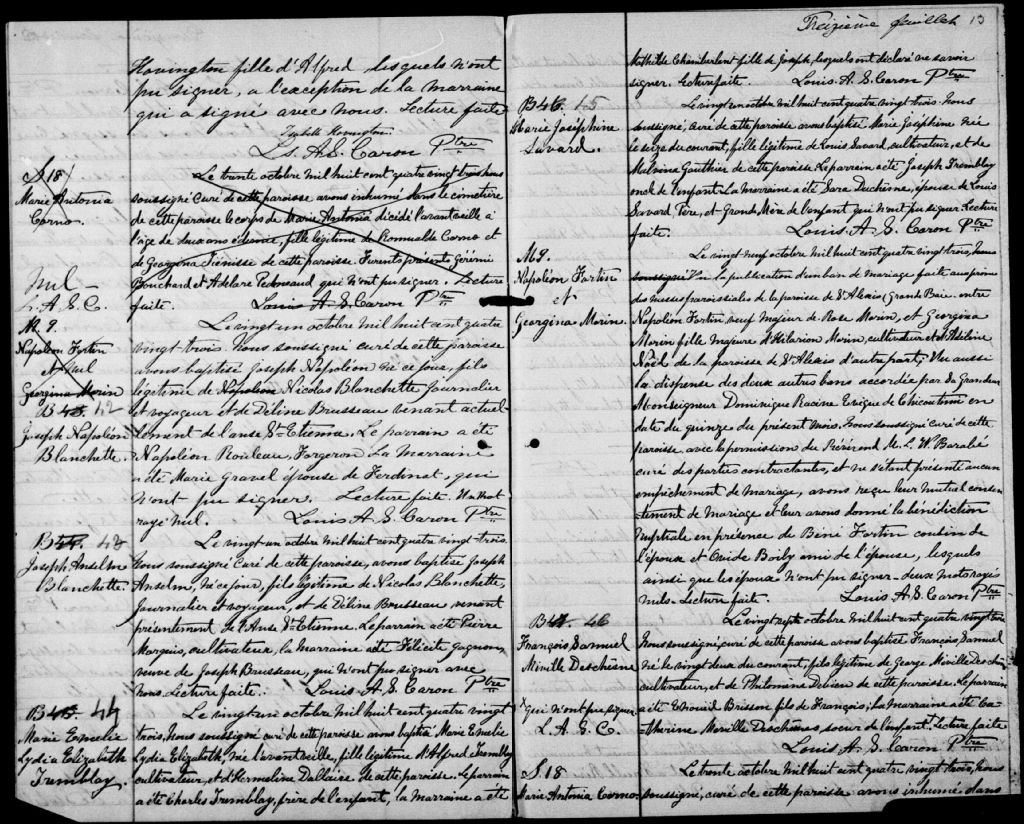 Hovington fille d'Alfred, lesquels n'ont
pu signer, a l'exception de la marraine
qui a signé avec nous. Lecture faite
Isabelle Hovington.
Ls. A. S. Caron Ptre
S. 18
Marie Antonia
Corno
Nul
L. A. S. C.
Le trente octobre mil huit cent quatre vingt trois, nous
soussigné Curé de cette paroisse, avons inhumé dans le cimetière
de cette paroisse le corps de Marie Antonia décédé l'avant veille à
l'âge de deux ans et demie, fille légitime de Romualde Corno et
de Georgina de cette paroisse. Furent présents Gérémi
Bouchard et Adelare Pedneaud qui n'ont pu signer. Lecture
faite. Louis A. S. Caron Ptre
M. 9.
Napoléon Fortin
et Nul
Georgina Morin
B 43. 42
Joseph Napoléon
Blanchette.
Le vingt un octobre mil huit cent quatre
vingt trois. Nous soussigné curé de cette paroisse
avons baptisé Joseph Napoléon né ce jour, fils
légitime de Napoleon Nicolas Blanchette, Journalier
et voyageur et de Déline Brusseau venant actuel-
lement de l'anse St Etienne. Le parrain a été
Napoléon Rouleau, Forgeron La marraine
a été Marie Gravel épouse de Ferdinat, qui
n'ont pu signer. Lecture faite. Un mot
rayé nul. Louis A. S. Caron Ptre
B 44. 43
Joseph Anselme
Blanchette.
Le vingt un octobre mil huit cent quatre vingt trois.
Nous soussigné Curé de cette paroisse, avons baptisé Joseph
Anselm, né ce jour, fils légitime de Nicolas Blanchette,
Journalier et voyageur, et de Déline Brusseau venant
présentement de l'Anse St Etienne. Le parrain a été Pierre
Marquis, cultivateur, la marraine a été Félicité gagnon,
veuve de Joseph Brusseau, qui n'ont pu signer avec
nous. Lecture faite. Louis A. S. Caron Ptre
B 45. 44
Marie Emelie
Lydia Elizabeth
Tremblay.
Le vingt un octobre mil huit cent quatre vingt
trois, nous soussigné curé de cette paroisse avons baptisé Marie Emelie
Lydia Elizabeth, née l'avant veille, fille légitime d'Alfred Tremblay
cultivateur, et d'Hermeline Dallaire de cette paroisse. Le parrain
a été Charles Tremblay, frère de l'enfant, la marraine a été
Treizième feuillet 13
Mathilde Chamberlent fille de Joseph, lesquels ont déclaré ne savoir
signer. Lecture faite. Louis A. S. Caron Ptre
B 46. 45
Marie Joséphine
Savard.
Le vingt un octobre mil huit cent quatre vingt trois. Nous
soussigné, curé de cette paroisse avons baptisé Marie Joséphine née
le seize du courant, fille légitime de Louis Savard, cultivateur, et de
Malvina Gauthier de cette paroisse. Le parrain a été Joseph Tremblay
oncle de l'enfant. La marraine a été Sara Duchêne, épouse de Louis
Savard Père, et Grande Mère de l'enfant qui n'ont pu signer. Lecture
faite. Louis A. S. Caron Ptre
M 9.
Napoléon Fortin
et
Georgina Morin.
Le vingt neuf octobre mil huit cent quatre vingt trois, nous
soussigné Vu la publication d'un ban de mariage faite au prône
des messes paroissiales de la paroisse de St Alexis Grande Baie. entre
Napoléon Fortin veuf majeur de Rose Morin, et Georgina
Morin fille majeure d'Hilarion Morin, cultivateur et d'Adeline
Noël de la paroisse de St Alexis d'autre part, Vu aussi
la dispense des deux autres bans accordée par Sa Grandeur
Monseigneur Dominique Racine Evêque de Chicoutimi en
date du quinze du présent mois. Nous soussigné curé de cette
paroisse, avec la permission du Révérend M. L. W. Barabé
curé des parties contractantes, et ne s'étant présenté aucun
empêchement de mariage, avons reçu leur mutuel consen-
tement de mariage et leur avons donné la bénédiction
nuptiale en présence de Béné Fortin cousin de
l'époux et Ovide Boily ami de l'épouse, lesquels
ainsi que les époux n'ont pu signer - deux mots rayés
nuls. Lecture faite. Louis A. S. Caron Ptre
B 47. 46
François Samuel
Miville Deschêne
Le vingt sept octobre mil huit cent quatre vingt trois
Nous soussigné, curé de cette paroisse avons baptisé François Samuel
né le vingt deux du courant, fils légitime de George Miville Deschêne
cultivateur, et de Philomine de cette paroisse. Le parrain
a été Brisson fils de François, la marraine a été Ca-
therine Miville Deschêne soeur de l'enfant. Lecture faite
Louis A. S. Caron Ptre
qui n'ont pu signer
L. A. S. C.
S. 18
Marie Antonia Corno.
Le trente octobre mil huit cent quatre vingt trois, nous
soussigné, curé de cette paroisse avons inhumé dans